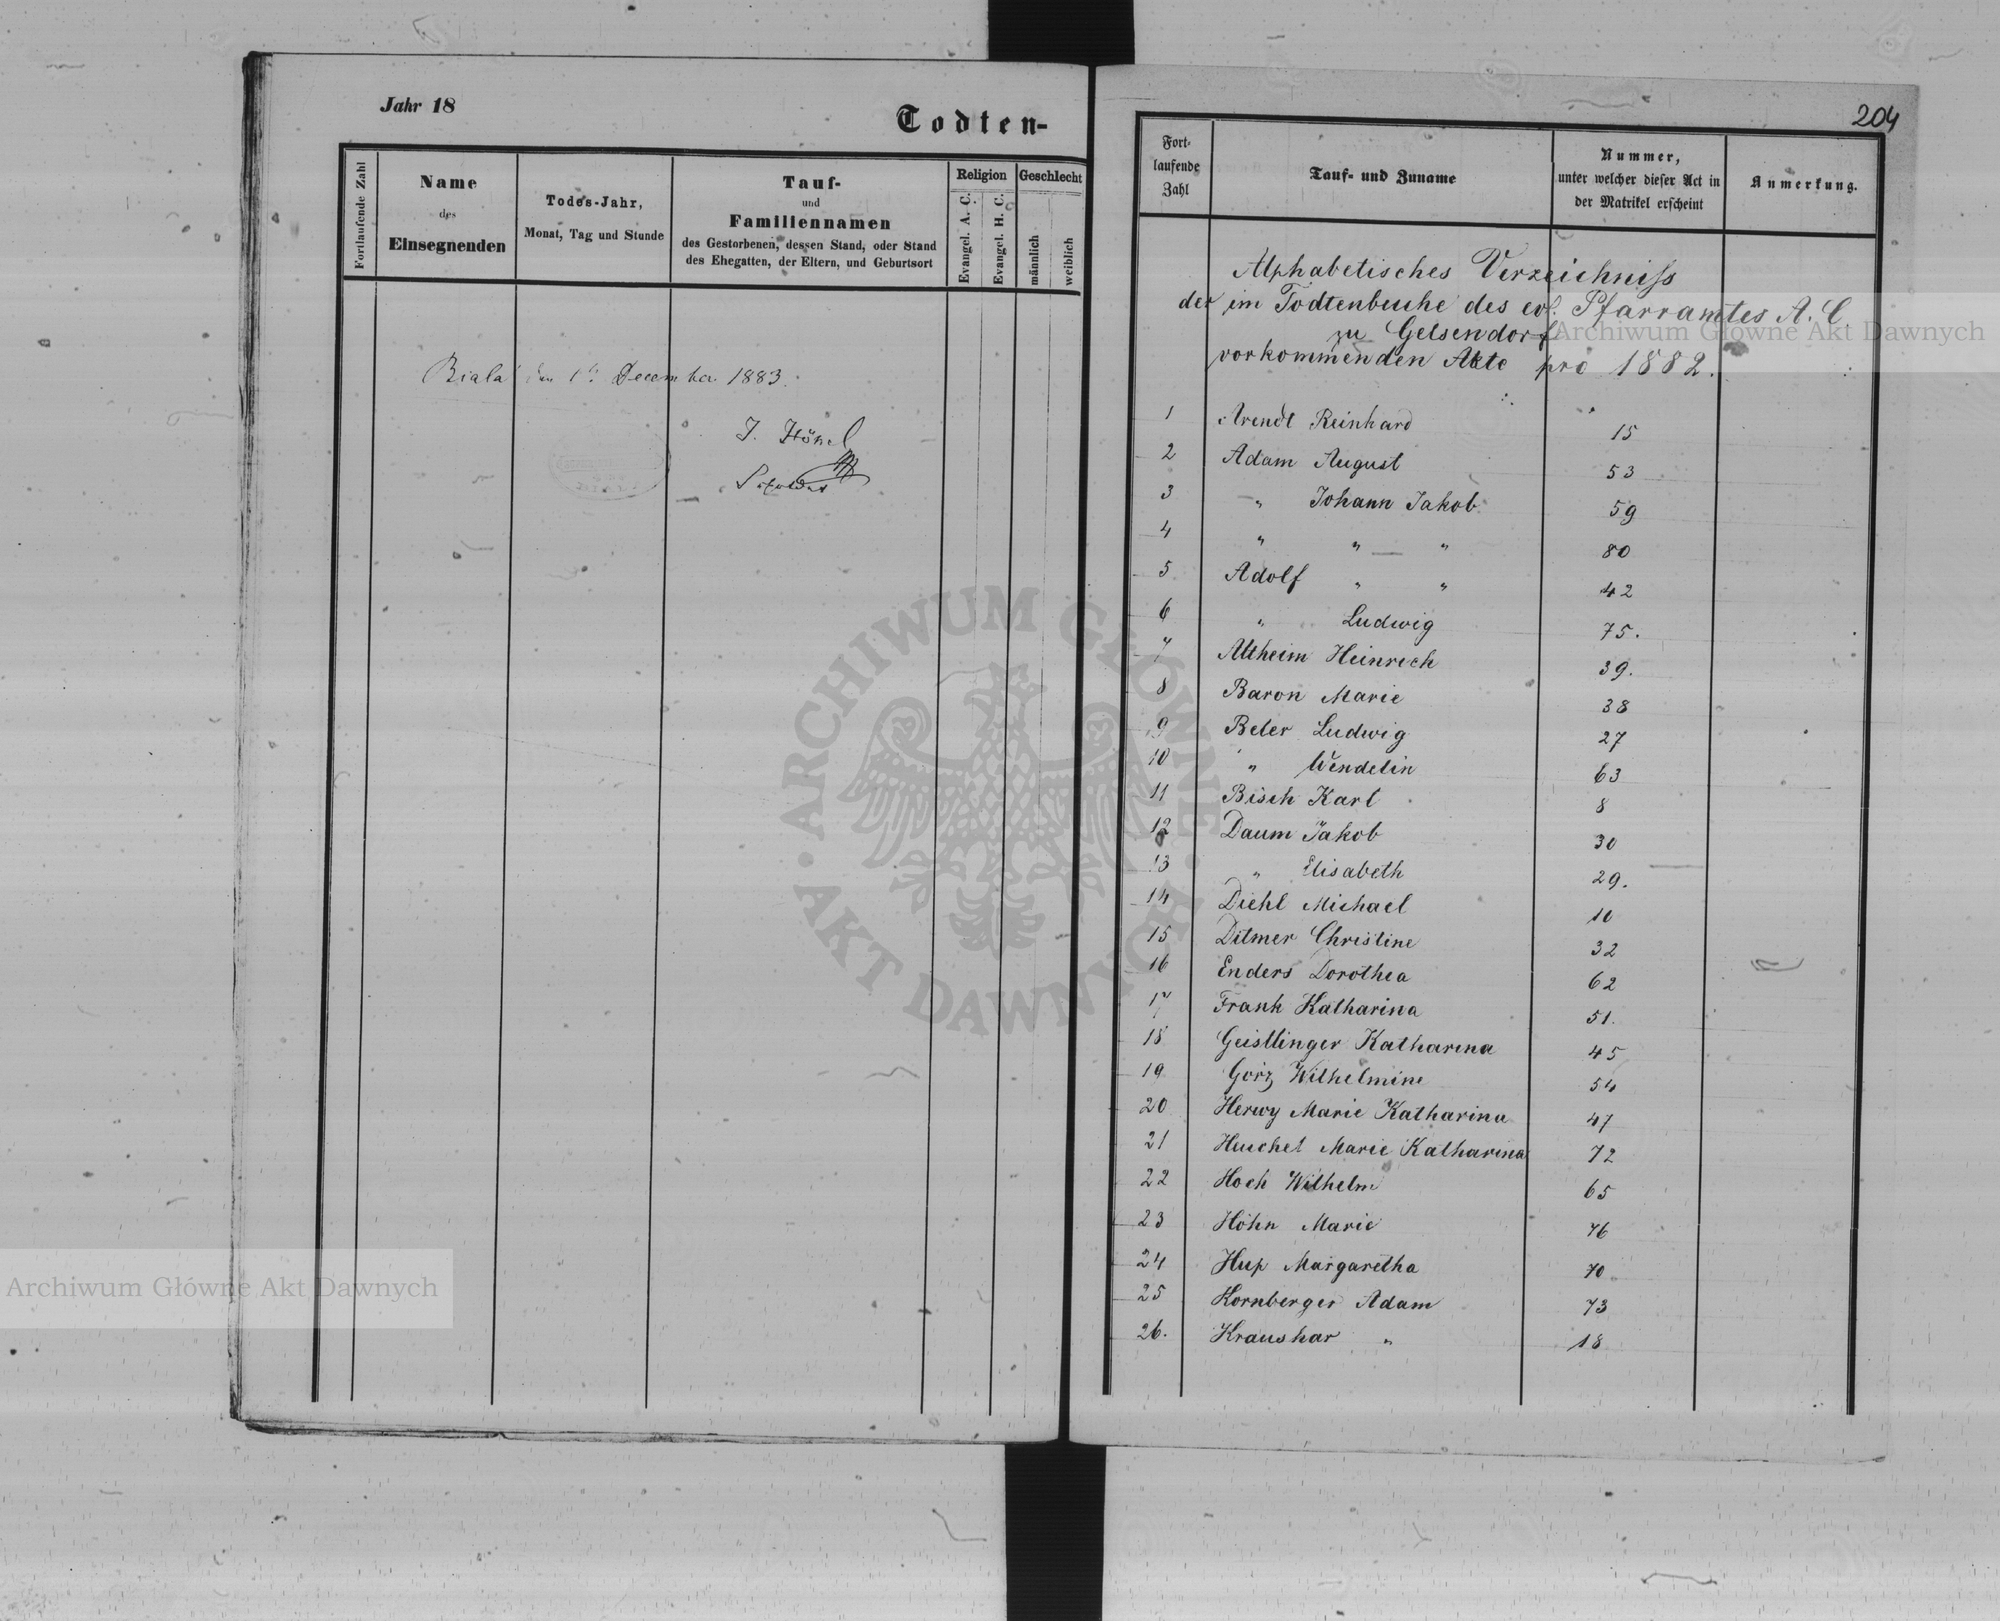 Jahr 18
Todten-
Fortlaufende Zahl
Name
des
Einsegnenden
Todes-Jahr,
Monat, Tag und Stunde
Tauf-
und
Familiennamen
des Gestorbenen, dessen Stand, oder Stand
des Ehegatten, der Eltern, und Geburtsort
Religion
Evangel. A. C.
Evangel. H. C.
Geschlecht
männlich
weiblich
Biala den 1 December 1883.
J. Hönel
204
Fort-
laufende
Zahl
Tauf- und Zuname
Nummer,
unter welcher dieser Act in
der Matrikel erscheint
Anmerkung.
Alphabetisches Verzeichniss
der im Todtenbuche des evl. Pfarramtes A. C
zu Gelsendorf
vorkommenden Akte pro 1882.
1 Arendt Reinhard 15
2 Adam August 53
3 " Johann Jakob 59
4 " " — " 80
5 Adolf " " 42
6 " Ludwig 75.
7 Altheim Heinrich 39.
8 Baron Marie 38
9 Beler Ludwig 27
10 " Wendelin 63
11 Bisch Karl 8
12 Daum Jakob 30
13 " Elisabeth 29.
14 Diehl Michael 10
15 Ditmer Christine 32
16 Enders Dorothea 62
17 Frank Katharina 51.
18 Geistlinger Katharina 45
19 Görz Wilhelmine 54
20 Herwy Marie Katharina 47
21 Huschel Marie Katharina 72
22 Hoch Wilhelm 65
23 Höhn Marie 76
24 Hup Margaretha 70
25 Kornberger Adam 73
26. Kraushar " 18
Archiwum Główne Akt Dawnych
ARCHIWUM GŁÓWNE · AKT DAWNYCH ·
Archiwum Główne Akt Dawnych